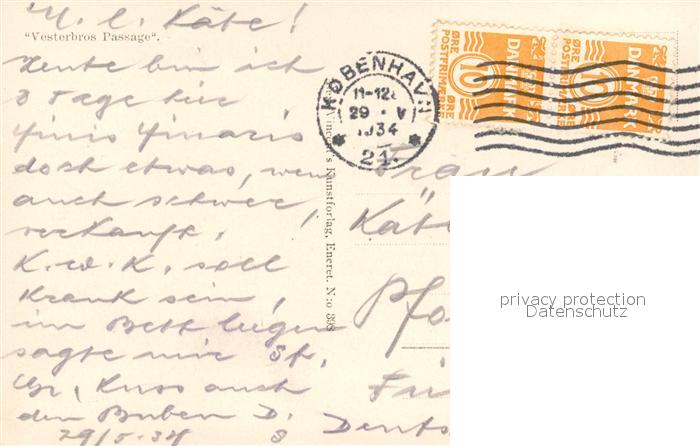 M. l. Käte!
"Vesterbros Passage".
Heute bin ich
3 Tage hier
doch etwas, wenn
auch schwer,
verkauft.
K.W.K. soll
Krank sein,
im Bett liegen
sagte mir St.
Gr, Kuss auch
den Buben D.
29/5-34
Vincent's Kunstforlag, Eneret. N:o 398
KØBENHAVN
11-12
29 V
1934
21
10 ØRE
POSTFRIMÆRKE
DANMARK
10 ØRE
POSTFRIMÆRKE
DANMARK
Frau
Käte
privacy protection
Datenschutz